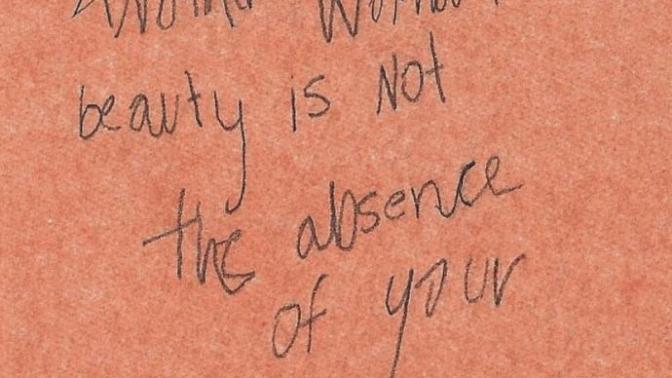 beauty is Not
the absence
of your